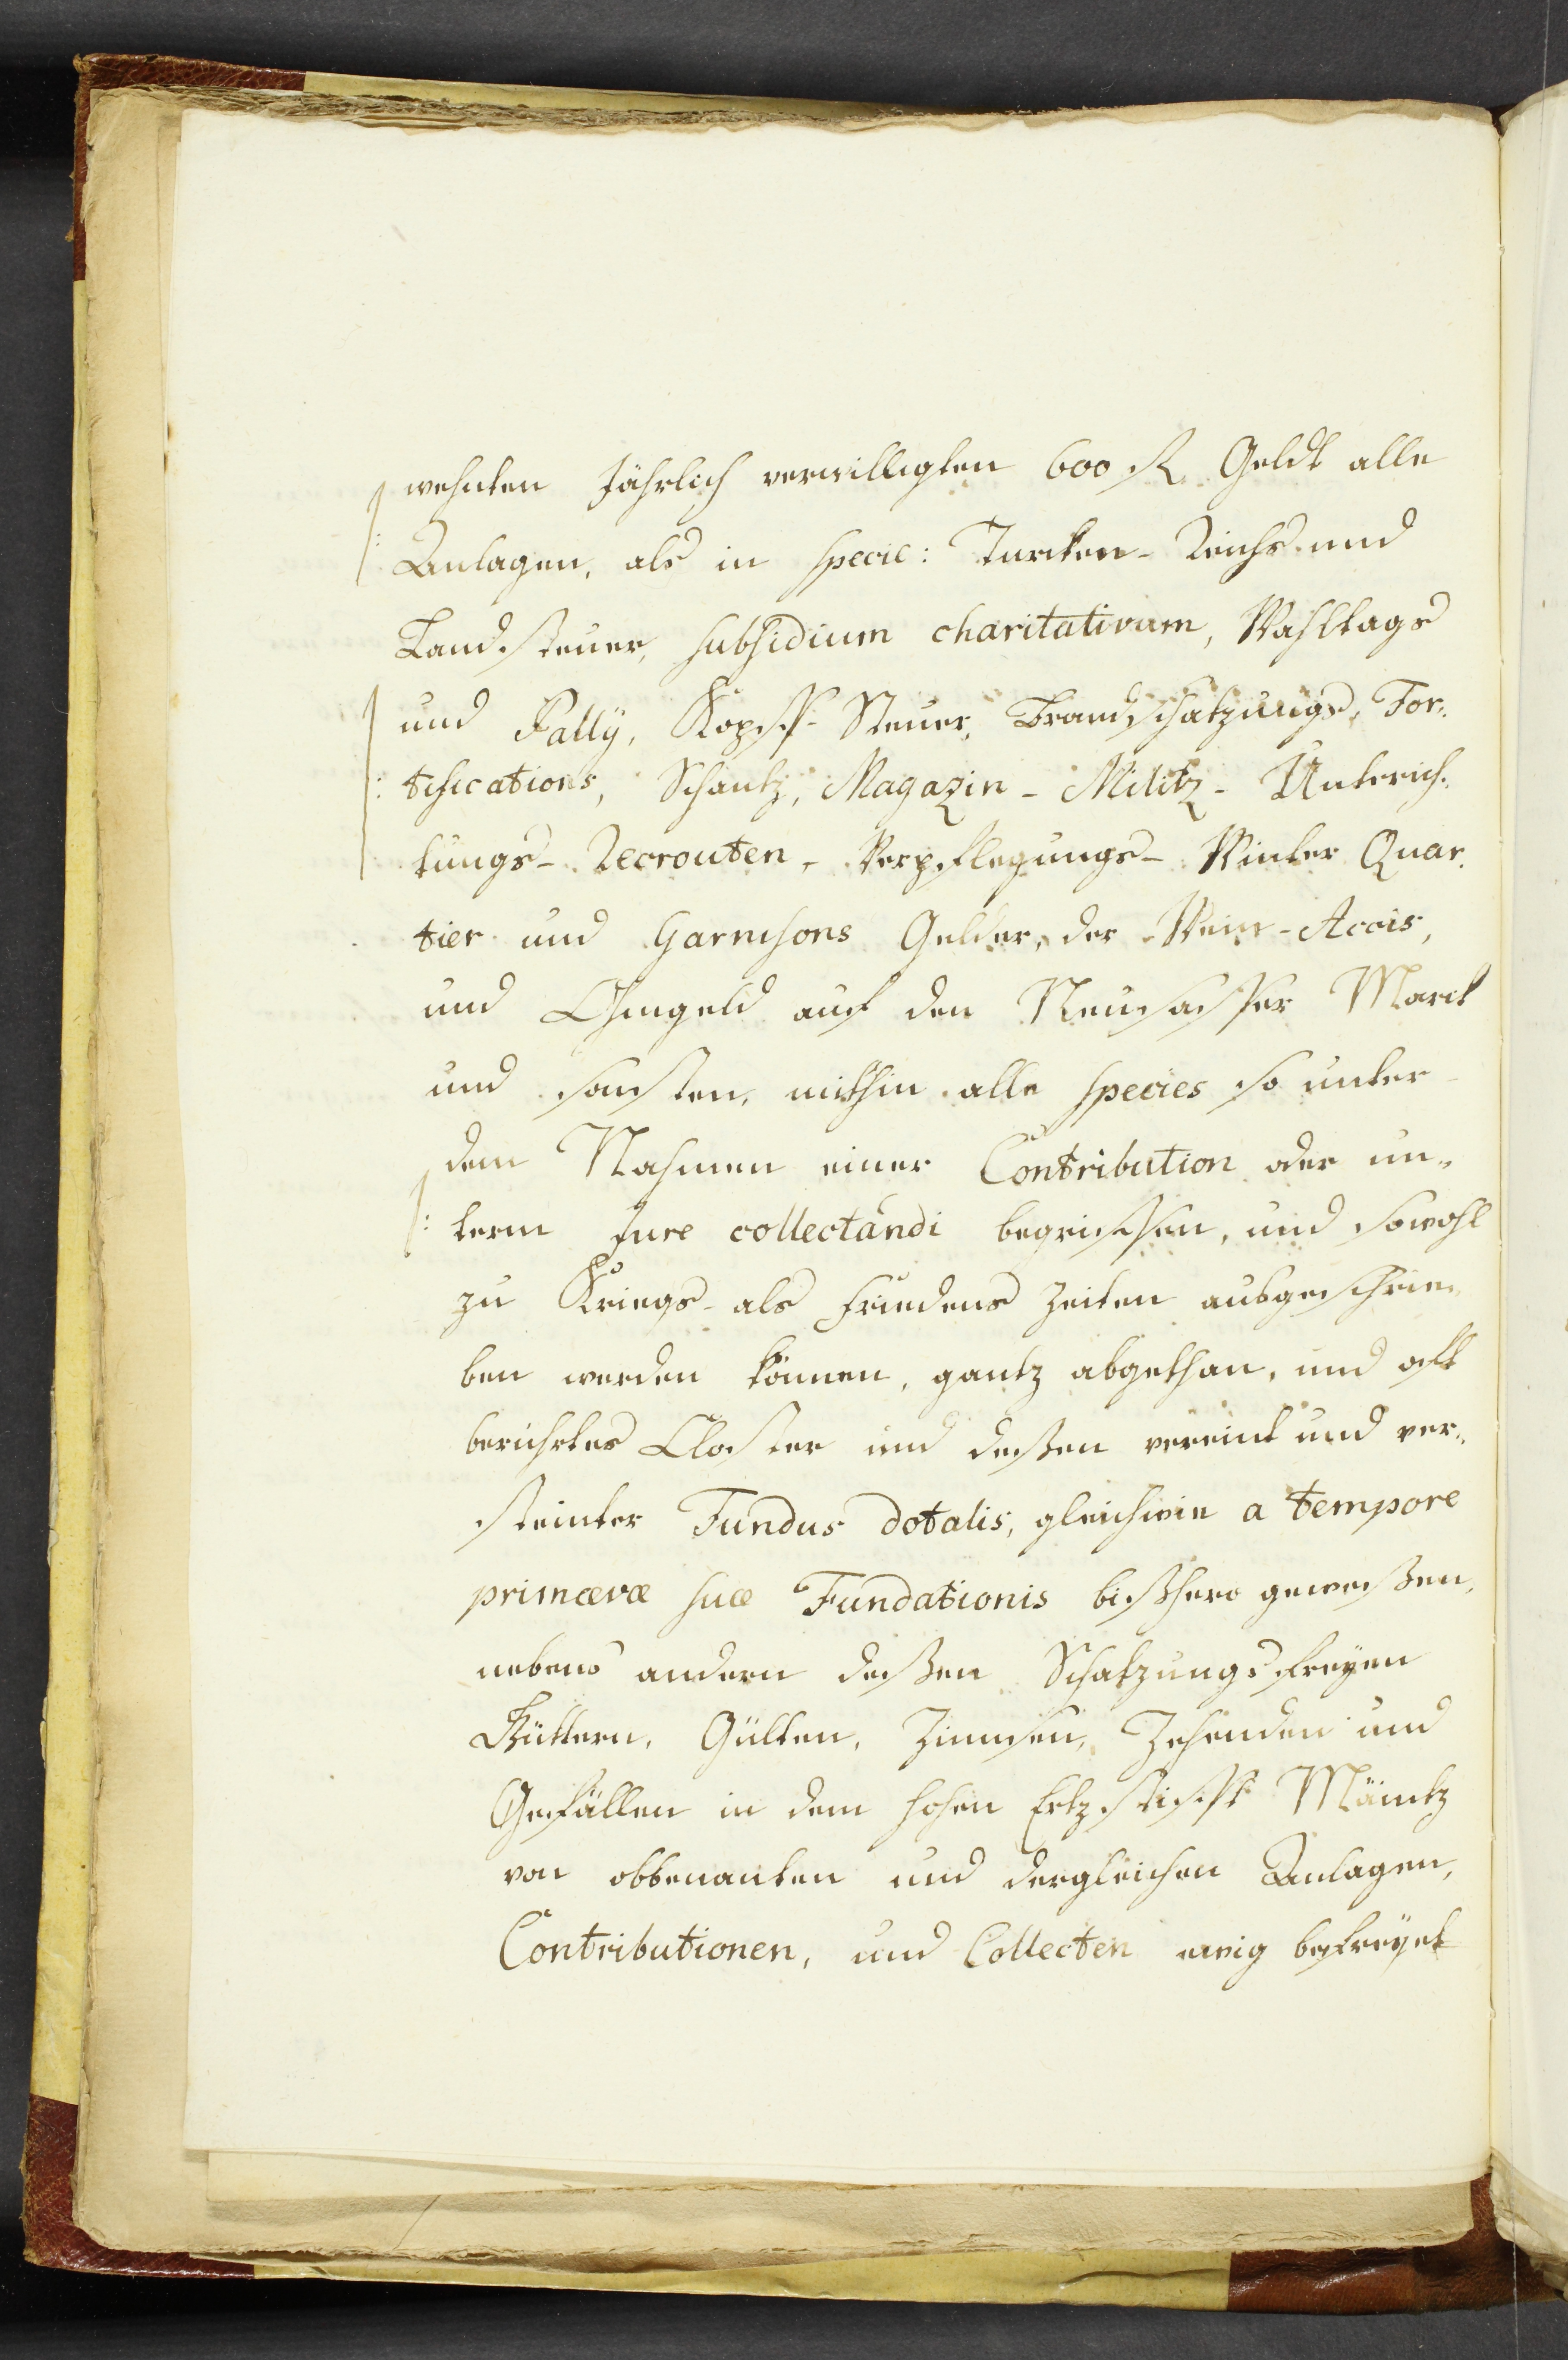 wehnten Jährlich verwilligten 600 fl. Geldt alle
Anlagen, als in specie: Turcken- Reichs- und
Landsteuer, subsidium charitativum, Wahltags
und Pally, Kopff- Steuer, Brandschatzungs, For„
tifications, Schantz, Magazin- Militz- Unterich„
tungs- Recrouten- Verpflegungs- Winter Quar„
tier und Garnisons Gelder, der Wein- Accis,
und Ohmgeld auf den Neusaßer Marck
und sonsten, mithin alle species so unter
dem Nahmen einer Contribution oder un„
term Jure collectandi begriffen, und sowohl
zu Kriegs- als Friedens Zeiten ausgeschrie„
ben werden können, gantz abgethan, und oft
berührtes Closter und deßen vereint und ver„
steinter Fundus dotalis, gleichwie a tempore
primævæ suæ Fundationis bißhero geweßen,
nebens andern deßen Schatzungsfreyen
Güttern, Gülten, Zinnsen, Zehenden und
Gefällen in dem hohen Ertzstifft Mäintz
von obbenanten und dergleichen Anlagen,
Contributionen, und Collecten ewig befreyet